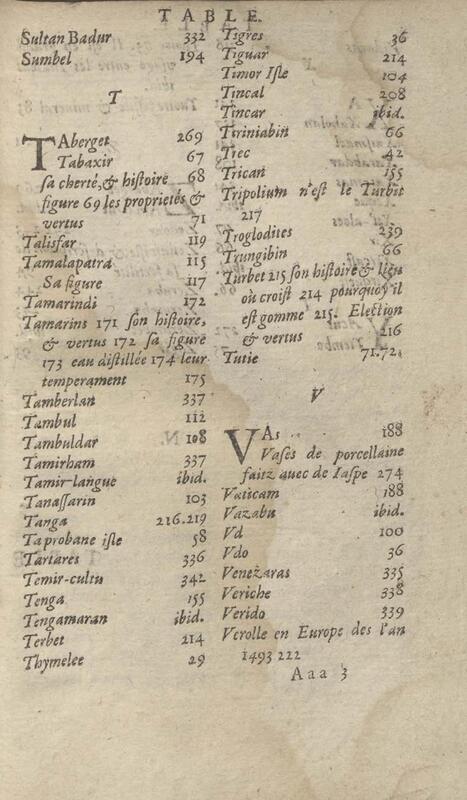 TABLE.
Sultan Badur 332
Sumbel 194
T
TAberget 269
Tabaxir 67
sa cherté, & histoire 68
figure 69 les proprietés &
vertus 71
Talisfar 119
Tamalapatra 115
Sa figure 117
Tamarindi 172
Tamarins 171 son histoire,
& vertus 172 sa figure
173 eau distillée 174 leur
temperament 175
Tamberlan 337
Tambul 112
Tambuldar 108
Tamirham 337
Tamir-langue ibid.
Tanassarin 103
Tanga 216.219
Taprobane isle 58
Tartares 336
Temir-cultu 342
Tenga 155
Tengamaran ibid.
Terbet 214
Thymelee 29
Tigres 36
Tiguar 214
Timor Isle 104
Tincal 208
Tincar ibid.
Tiriniabin 66
Trec 42
Trican 155
Tripolium n'est le Turbit
217
Troglodites 239
Trungibin 66
Turbet 215 son histoire & lieu
où croist 214 pourquoy il
est gomme 215. Election
& vertus 216
Tutie 71.72.
V
VAs 188
Vases de porcellaine
faitz auec de Iaspe 274
Vaticam 188
Vazabu ibid.
Vd 100
Vdo 36
Venežaras 335
Veriche 338
Verido 339
Verolle en Europe des l'an
1493 222
Aaa 3